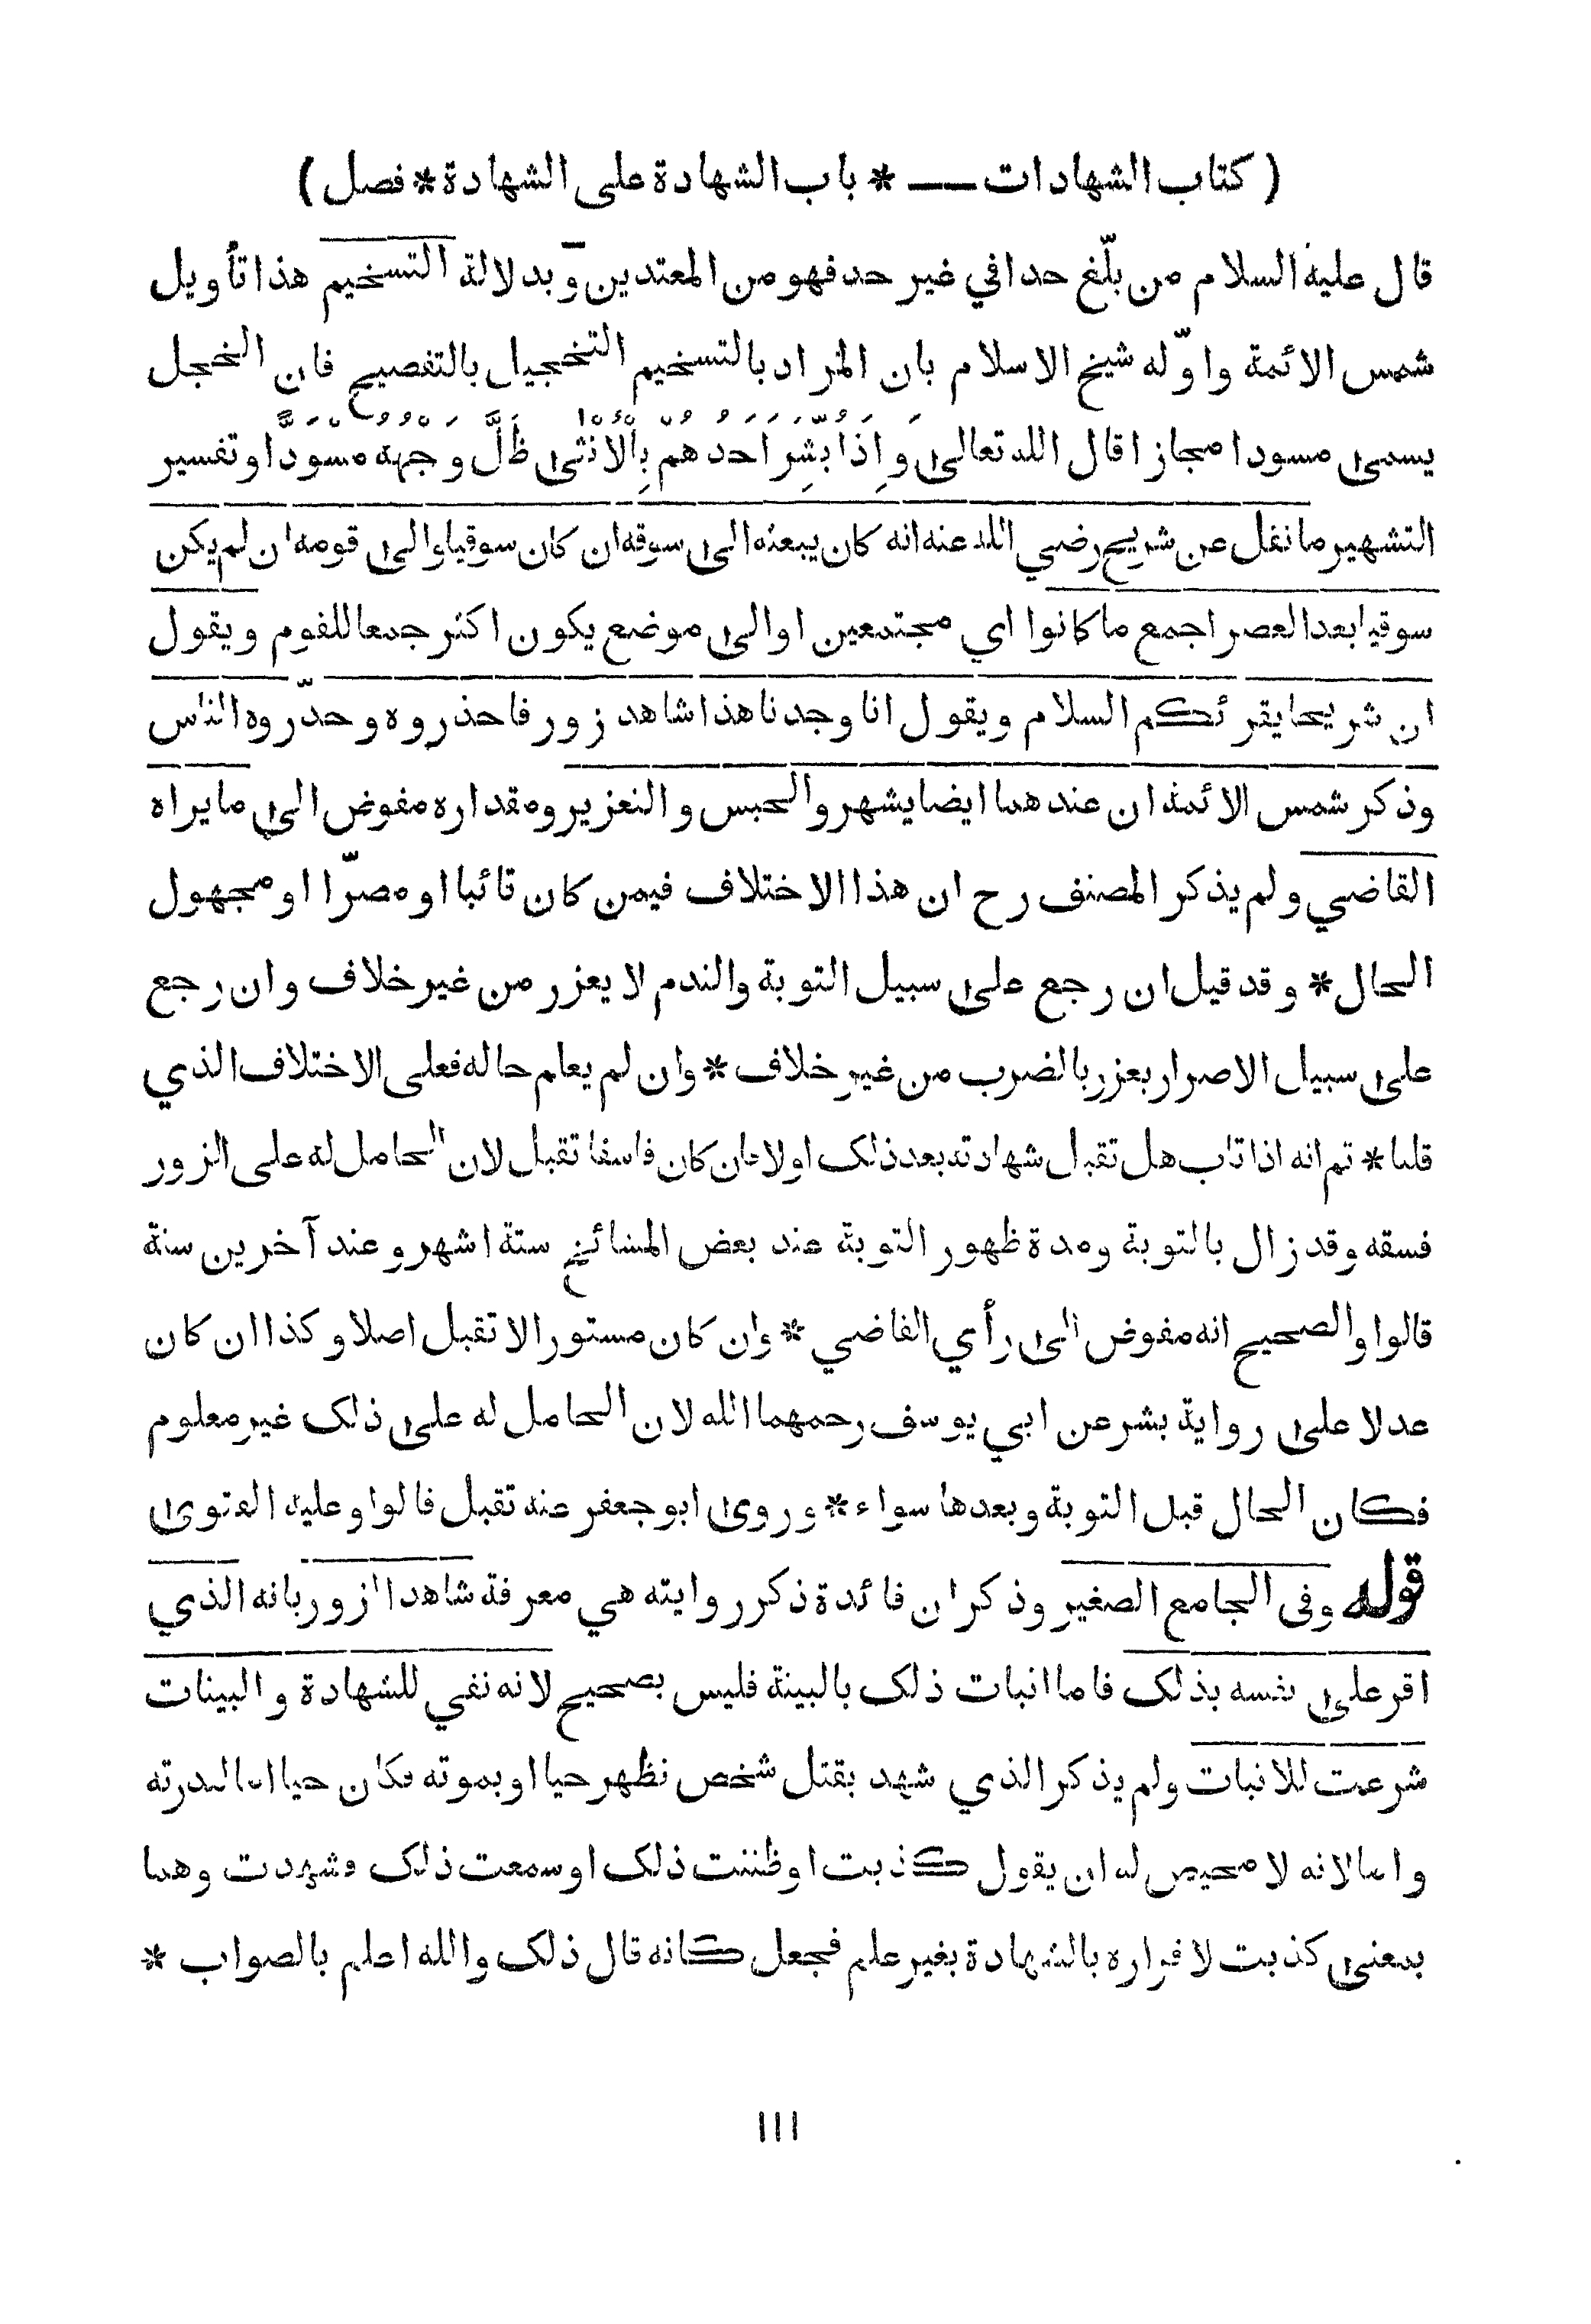 ( كتاب الشهادات — * باب الشهادة على الشهادة * فصل )
قال عليه السلام من بلّغ حدا في غير حد فهو من المعتدين وبدلالة التسخيم هذا تأويل
شمس الائمة واوّله شيخ الاسلام بان المراد بالتسخيم التخجيل بالتفصيح فان الخجل
يسمى مسودا مجازا قال الله تعالى وَإِذَا بُشِّرَ اَحَدُهُمْ بِالْاُنْثٰى ظَلَّ وَجْهُهُ مُسْوَدًّا وتفسير
التشهير ما نقل عن شريح رضي الله عنه انه كان يبعثه الى سوقه ان كان سوقيا والى قومه ان لم يكن
سوقيا بعد العصر اجمع ما كانوا اي مجتمعين او الى موضع يكون اكثر جمعا للقوم ويقول
ان شريحا يقرئكم السلام ويقول انا وجدنا هذا شاهد زور فاحذروه وحذّروه الناس
وذكر شمس الائمة ان عندهما ايضا يشهر والحبس والتعزير ومقداره مفوض الى ما يراه
القاضي ولم يذكر المصنف رح ان هذا الاختلاف فيمن كان تائبا او مصرّا او مجهول
الحال * وقد قيل ان رجع على سبيل التوبة والندم لا يعزر من غير خلاف وان رجع
على سبيل الاصرار يعزر بالضرب من غير خلاف * وان لم يعلم حاله فعلى الاختلاف الذي
قلنا * ثم انه اذا تاب هل تقبل شهادته بعد ذلك او لا فان كان فاسقا تقبل لان الحامل له على الزور
فسقه وقد زال بالتوبة ومدة ظهور التوبة عند بعض المشائخ ستة اشهر وعند آخرين سنة
قالوا والصحيح انه مفوض الى رأي القاضي * وان كان مستورا لا تقبل اصلا وكذا ان كان
عدلا على رواية بشر عن ابي يوسف رحمهما الله لان الحامل له على ذلك غير معلوم
فكان الحال قبل التوبة وبعدها سواء * وروى ابو جعفر عنه تقبل قالوا وعليه الفتوى
قوله وفى الجامع الصغير وذكر ان فائدة ذكر روايته هي معرفة شاهد الزور بانه الذي
اقر على نفسه بذلك فاما اثبات ذلك بالبينة فليس بصحيح لانه نفي للشهادة والبينات
شرعت للاثبات ولم يذكر الذي شهد بقتل شخص نظهر حيا او بموته فكان حيا اما لندرته
واما لانه لا محيص له ان يقول كذبت او ظننت ذلك او سمعت ذلك فشهدت وهما
بمعنى كذبت لاقراره بالشهادة بغير علم فجعل كانه قال ذلك والله اعلم بالصواب *
١١١